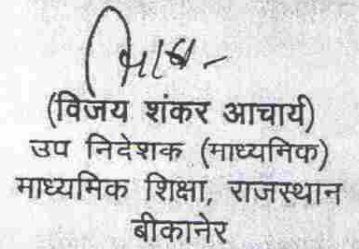 (विजय शंकर आचार्य)
उप निदेशक (माध्यनिक)
माध्यमिक शिक्षा, राजस्थान
बीकानेर